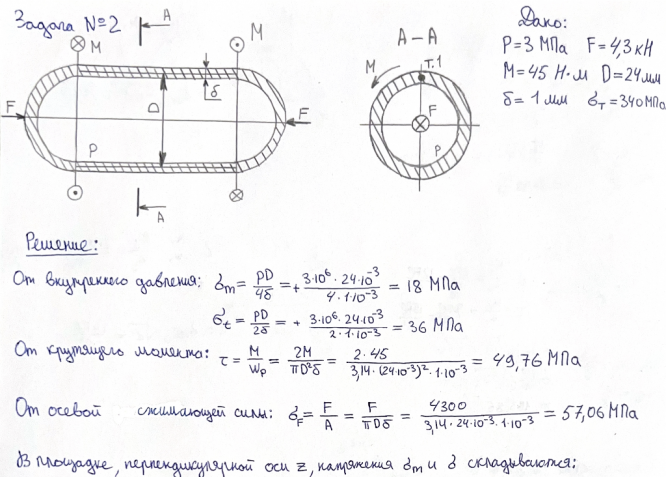 Задача №2
A
M
M
A
A – A
M
т.1
F
P
F
F
D
δ
P
Дано:
P=3 МПа F=4,3 кН
M=45 Н·м D=24мм
δ=1 мм σт=340МПа
Решение:
От внутреннего давления: σm = PD/4δ = + 3·10⁶·24·10⁻³/4·1·10⁻³ = 18 МПа
σt = PD/2δ = + 3·10⁶·24·10⁻³/2·1·10⁻³ = 36 МПа
От крутящего момента: τ = M/Wp = 2M/πD²δ = 2·45/3,14·(24·10⁻³)²·1·10⁻³ = 49,76 МПа
От осевой сжимающей силы: σF = F/A = F/πDδ = 4300/3,14·24·10⁻³·1·10⁻³ = 57,06 МПа
В площадке, перпендикулярной оси z, напряжения σm и σ складываются: